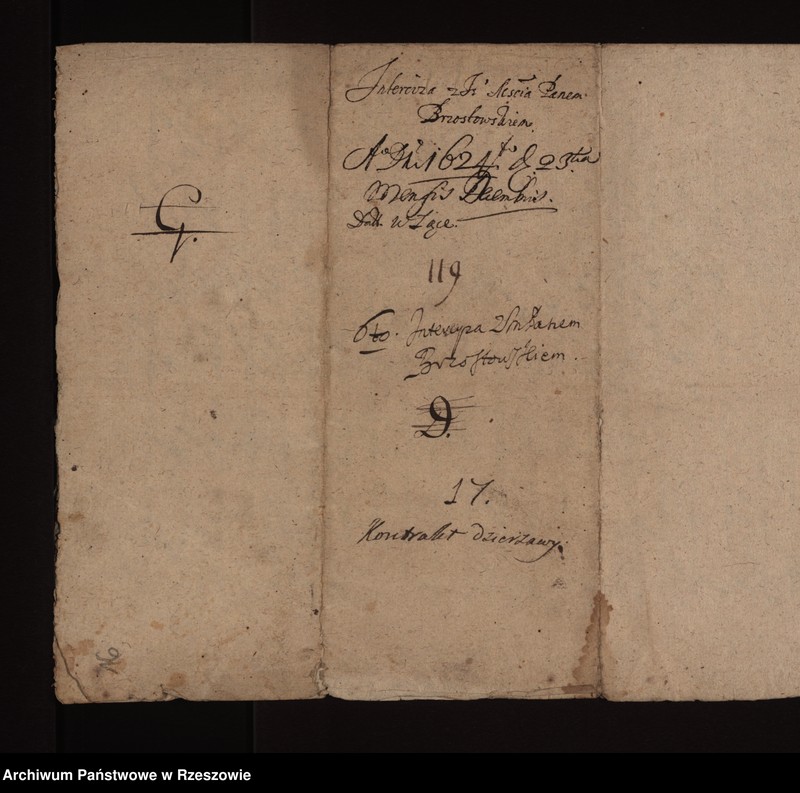 G.
Interciza z Panem
Brzostowskiem.
Ao Dni 1624to d. 23tia
Mensis Decembris.
Datt. w Łące.
119
6to. Intercyza Panem
Brzostowskiem.
D.
17.
Kontrakt dzierżawy.
Archiwum Państwowe w Rzeszowie